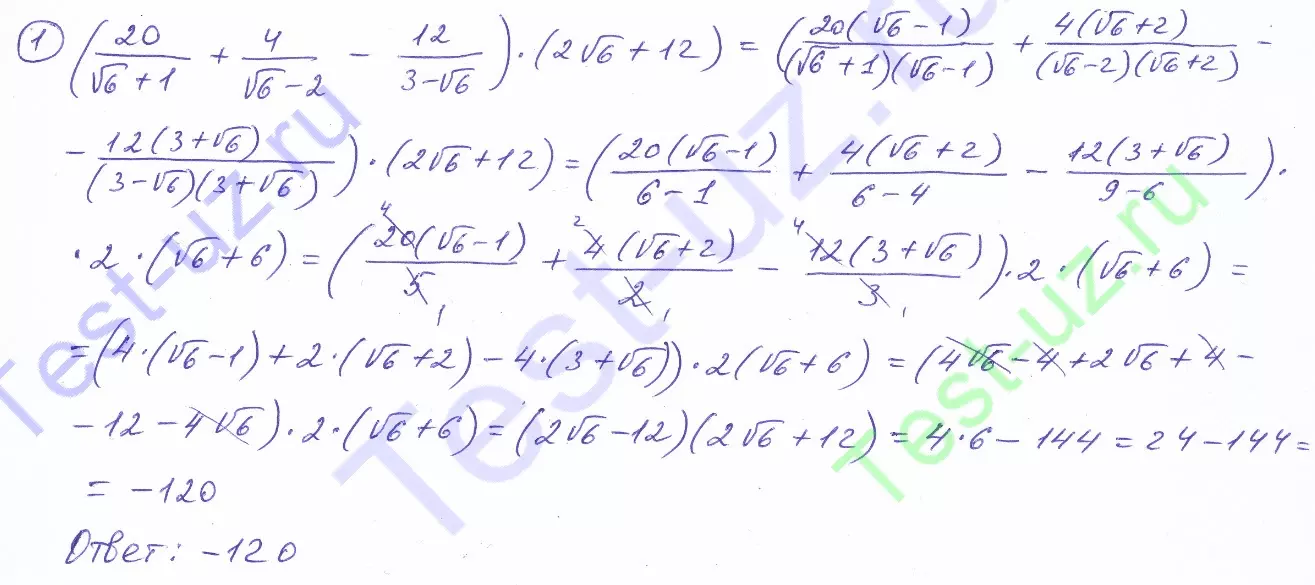 ① (20/(√6+1) + 4/(√6-2) - 12/(3-√6)) · (2√6+12) = (20(√6-1)/((√6+1)(√6-1)) + 4(√6+2)/((√6-2)(√6+2)) -
- 12(3+√6)/((3-√6)(3+√6))) · (2√6+12) = (20(√6-1)/(6-1) + 4(√6+2)/(6-4) - 12(3+√6)/(9-6)) ·
· 2 · (√6+6) = (20(√6-1)/5 + 4(√6+2)/2 - 12(3+√6)/3) · 2 · (√6+6) =
= (4·(√6-1) + 2·(√6+2) - 4·(3+√6)) · 2(√6+6) = (4√6 - 4 + 2√6 + 4 -
- 12 - 4√6) · 2 · (√6+6) = (2√6-12)(2√6+12) = 4·6 - 144 = 24 - 144 =
= -120
Ответ: -120
Test-uz.ru
Test-uz.ru
Test-uz.ru